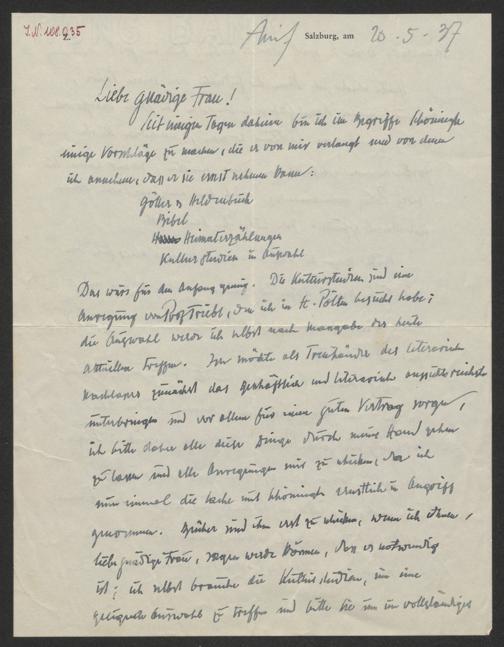 J.N. 188.935
Anif Salzburg, am 20-5-37
Liebe gnädige Frau!
Seit einigen Tagen daheim bin ich im Begriffe Schöningh
einige Vorschläge zu machen, die er von mir verlangt und von denen
ich annehme, dass er sie ernst nehmen kann:
Götter u Heldenbuch
Bibel
Heimaterzählungen
Kulturstudien in Auswahl
Das wäre für den Anfang genug. Die Kulturstudien sind eine
Anregung von Prof Triebl, den ich in St. Pölten besucht habe;
die Auswahl werde ich selbst nach Massgabe des heute
aktuellen treffen. Ich möchte als Treuhänder des literarischen
Nachlasses zunächst das geschäftlich und literarisch aussichtsreichste
unterbringen und vor allem für einen guten Vertrag sorgen,
ich bitte daher alle diese Dinge durch meine Hand gehen
zu lassen und alle Anregungen mir zu schicken, da ich
nun einmal die Sache mit Schöningh ernstlich in Angriff
genommen. Bücher sind ihm erst zu schicken, wenn ich Ihnen,
liebe gnädige Frau, sagen werde können, dass es notwendig
ist; ich selbst brauche die Kulturstudien, um eine
geeignete Auswahl zu treffen und bitte Sie um ein vollständiges